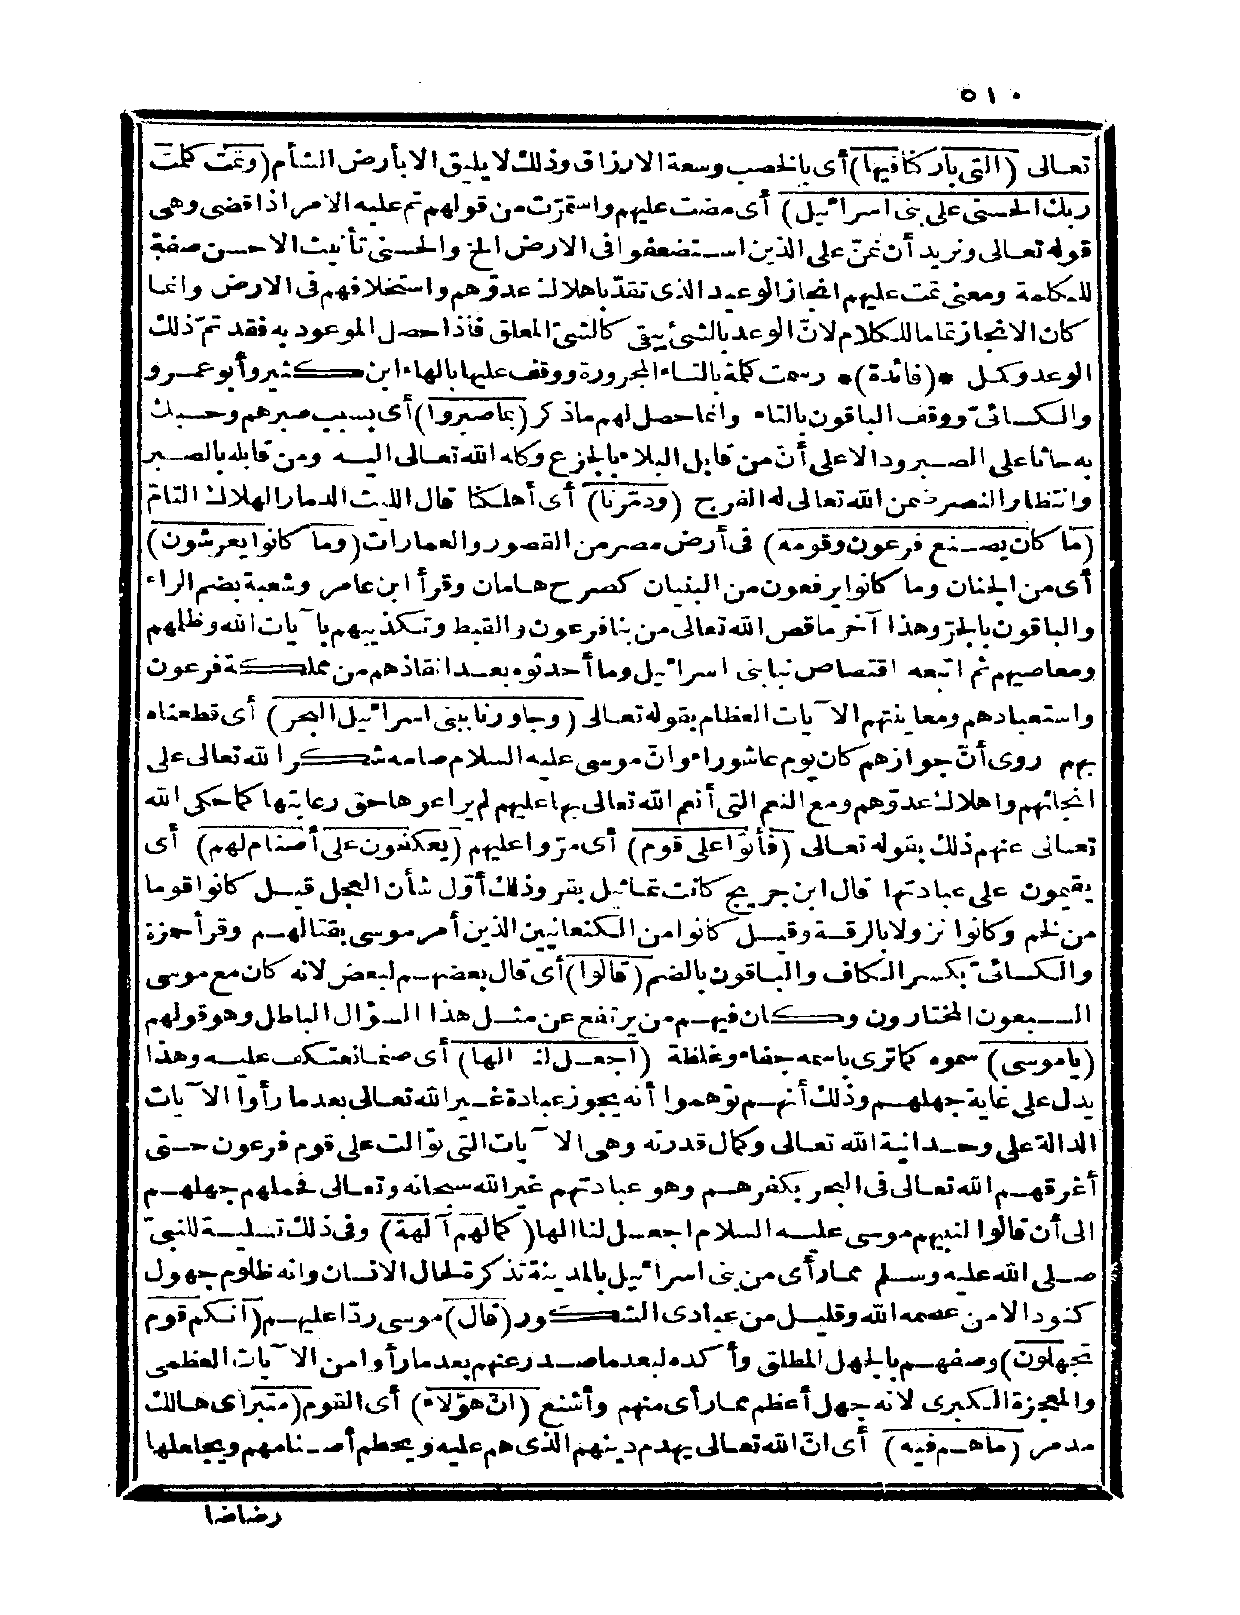 ٥١٠
تعالى (التى باركنا فيها) أى بالخصب وسعة الارزاق وذلك لا يليق الا بأرض الشأم (وتمت كلمت
ربك الحسنى على بنى اسرائيل) أى مضت عليهم واستمرّت من قولهم تم عليه الامر اذا قضى وهى
قوله تعالى ونريد أن نمنّ على الذين استضعفوا فى الارض الخ والحسنى تأنيث الاحسن صفة
للكلمة ومعنى تمت عليهم انجاز الوعيد الذى تقدّم باهلاك عدوّهم واستخلافهم فى الارض وانما
كان الانجاز تماما للكلام لانّ الوعد بالشئ يبقى كالشئ المعلق فاذا حصل الموعود به فقد تمّ ذلك
الوعد وكمل *(فائدة)* رسمت كلمة بالتاء المجرورة ووقف عليها بالهاء ابن كثير وأبو عمرو
والكسائىّ ووقف الباقون بالتاء وانما حصل لهم ماذكر (بما صبروا) أى بسبب صبرهم وحسبك
به حاثا على الصبر ودالا على أنّ من قابل البلاء بالجزع وكله الله تعالى اليه ومن قابله بالصبر
وانتظار النصر ضمن الله تعالى له الفرج (ودمّرنا) أى أهلكنا قال الليث الدمار الهلاك التامّ
(ما كان يصنع فرعون وقومه) فى أرض مصر من القصور والعمارات (وما كانوا يعرشون)
أى من الجنان وما كانوا يرفعون من البنيان كصرح هامان وقرأ ابن عامر وشعبة بضم الراء
والباقون بالجرّ وهذا آخر ماقص الله تعالى من بنا فرعون والقبط وتكذيبهم بآيات الله وظلمهم
ومعاصيهم ثم اتبعه اقتصاص نبا بنى اسرائيل وما أحدثوه بعد انقاذهم من مملكة فرعون
واستعبادهم ومعاينتهم الآيات العظام بقوله تعالى (وجاوزنا ببنى اسرائيل البحر) أى قطعناه
بهم روى أنّ جوازهم كان يوم عاشوراء وانّ موسى عليه السلام صامه شكرا لله تعالى على
انجائهم واهلاك عدوّهم ومع النعم التى أنعم الله تعالى بها عليهم لم يراعوها حق رعايتها كما حكى الله
تعالى عنهم ذلك بقوله تعالى (فأتوا على قوم) أى مرّوا عليهم (يعكفون على أصنام لهم) أى
يقيمون على عبادتها قال ابن جريج كانت تماثيل بقر وذلك أوّل شأن العجل قيل كانوا قوما
من لخم وكانوا نزولا بالرقة وقيل كانوا من الكنعانيين الذين أمر موسى بقتالهم وقرأ حمزة
والكسائىّ بكسر الكاف والباقون بالضم (قالوا) أى قال بعضهم لبعض لانه كان مع موسى
السبعون المختارون وكان فيهم من يرتفع عن مثل هذا السؤال الباطل وهو قولهم
(ياموسى) سموه كما ترى باسمه جفاء وغلظة (اجعل لنا الها) أى صنما نعتكف عليه وهذا
يدل على غاية جهلهم وذلك أنهم توهموا أنه يجوز عبادة غير الله تعالى بعد ما رأوا الآيات
الدالة على وحدانية الله تعالى وكمال قدرته وهى الآيات التى توالت على قوم فرعون حتى
أغرقهم الله تعالى فى البحر بكفرهم وهو عبادتهم غير الله سبحانه وتعالى فحملهم جهلهم
الى أن قالوا لنبيهم موسى عليه السلام اجعل لنا الها (كما لهم آلهة) وفى ذلك تسلية للنبىّ
صلى الله عليه وسلم مما رأى من بنى اسرائيل بالمدينة تذكرة لحال الانسان وانه ظلوم جهول
كنود الا من عصمه الله وقليل من عبادى الشكور (قال) موسى ردّا عليهم (انكم قوم
تجهلون) وصفهم بالجهل المطلق وأكده لبعد ما صدر عنهم بعد ما رأوا من الآيات العظمى
والمعجزة الكبرى لانه جهل أعظم مما رأى منهم وأشنع (انّ هؤلاء) أى القوم (متبر) أى هالك
مدمر (ما هم فيه) أى انّ الله تعالى يهدم دينهم الذى هم عليه ويحطم أصنامهم ويجعلها
رضاضا